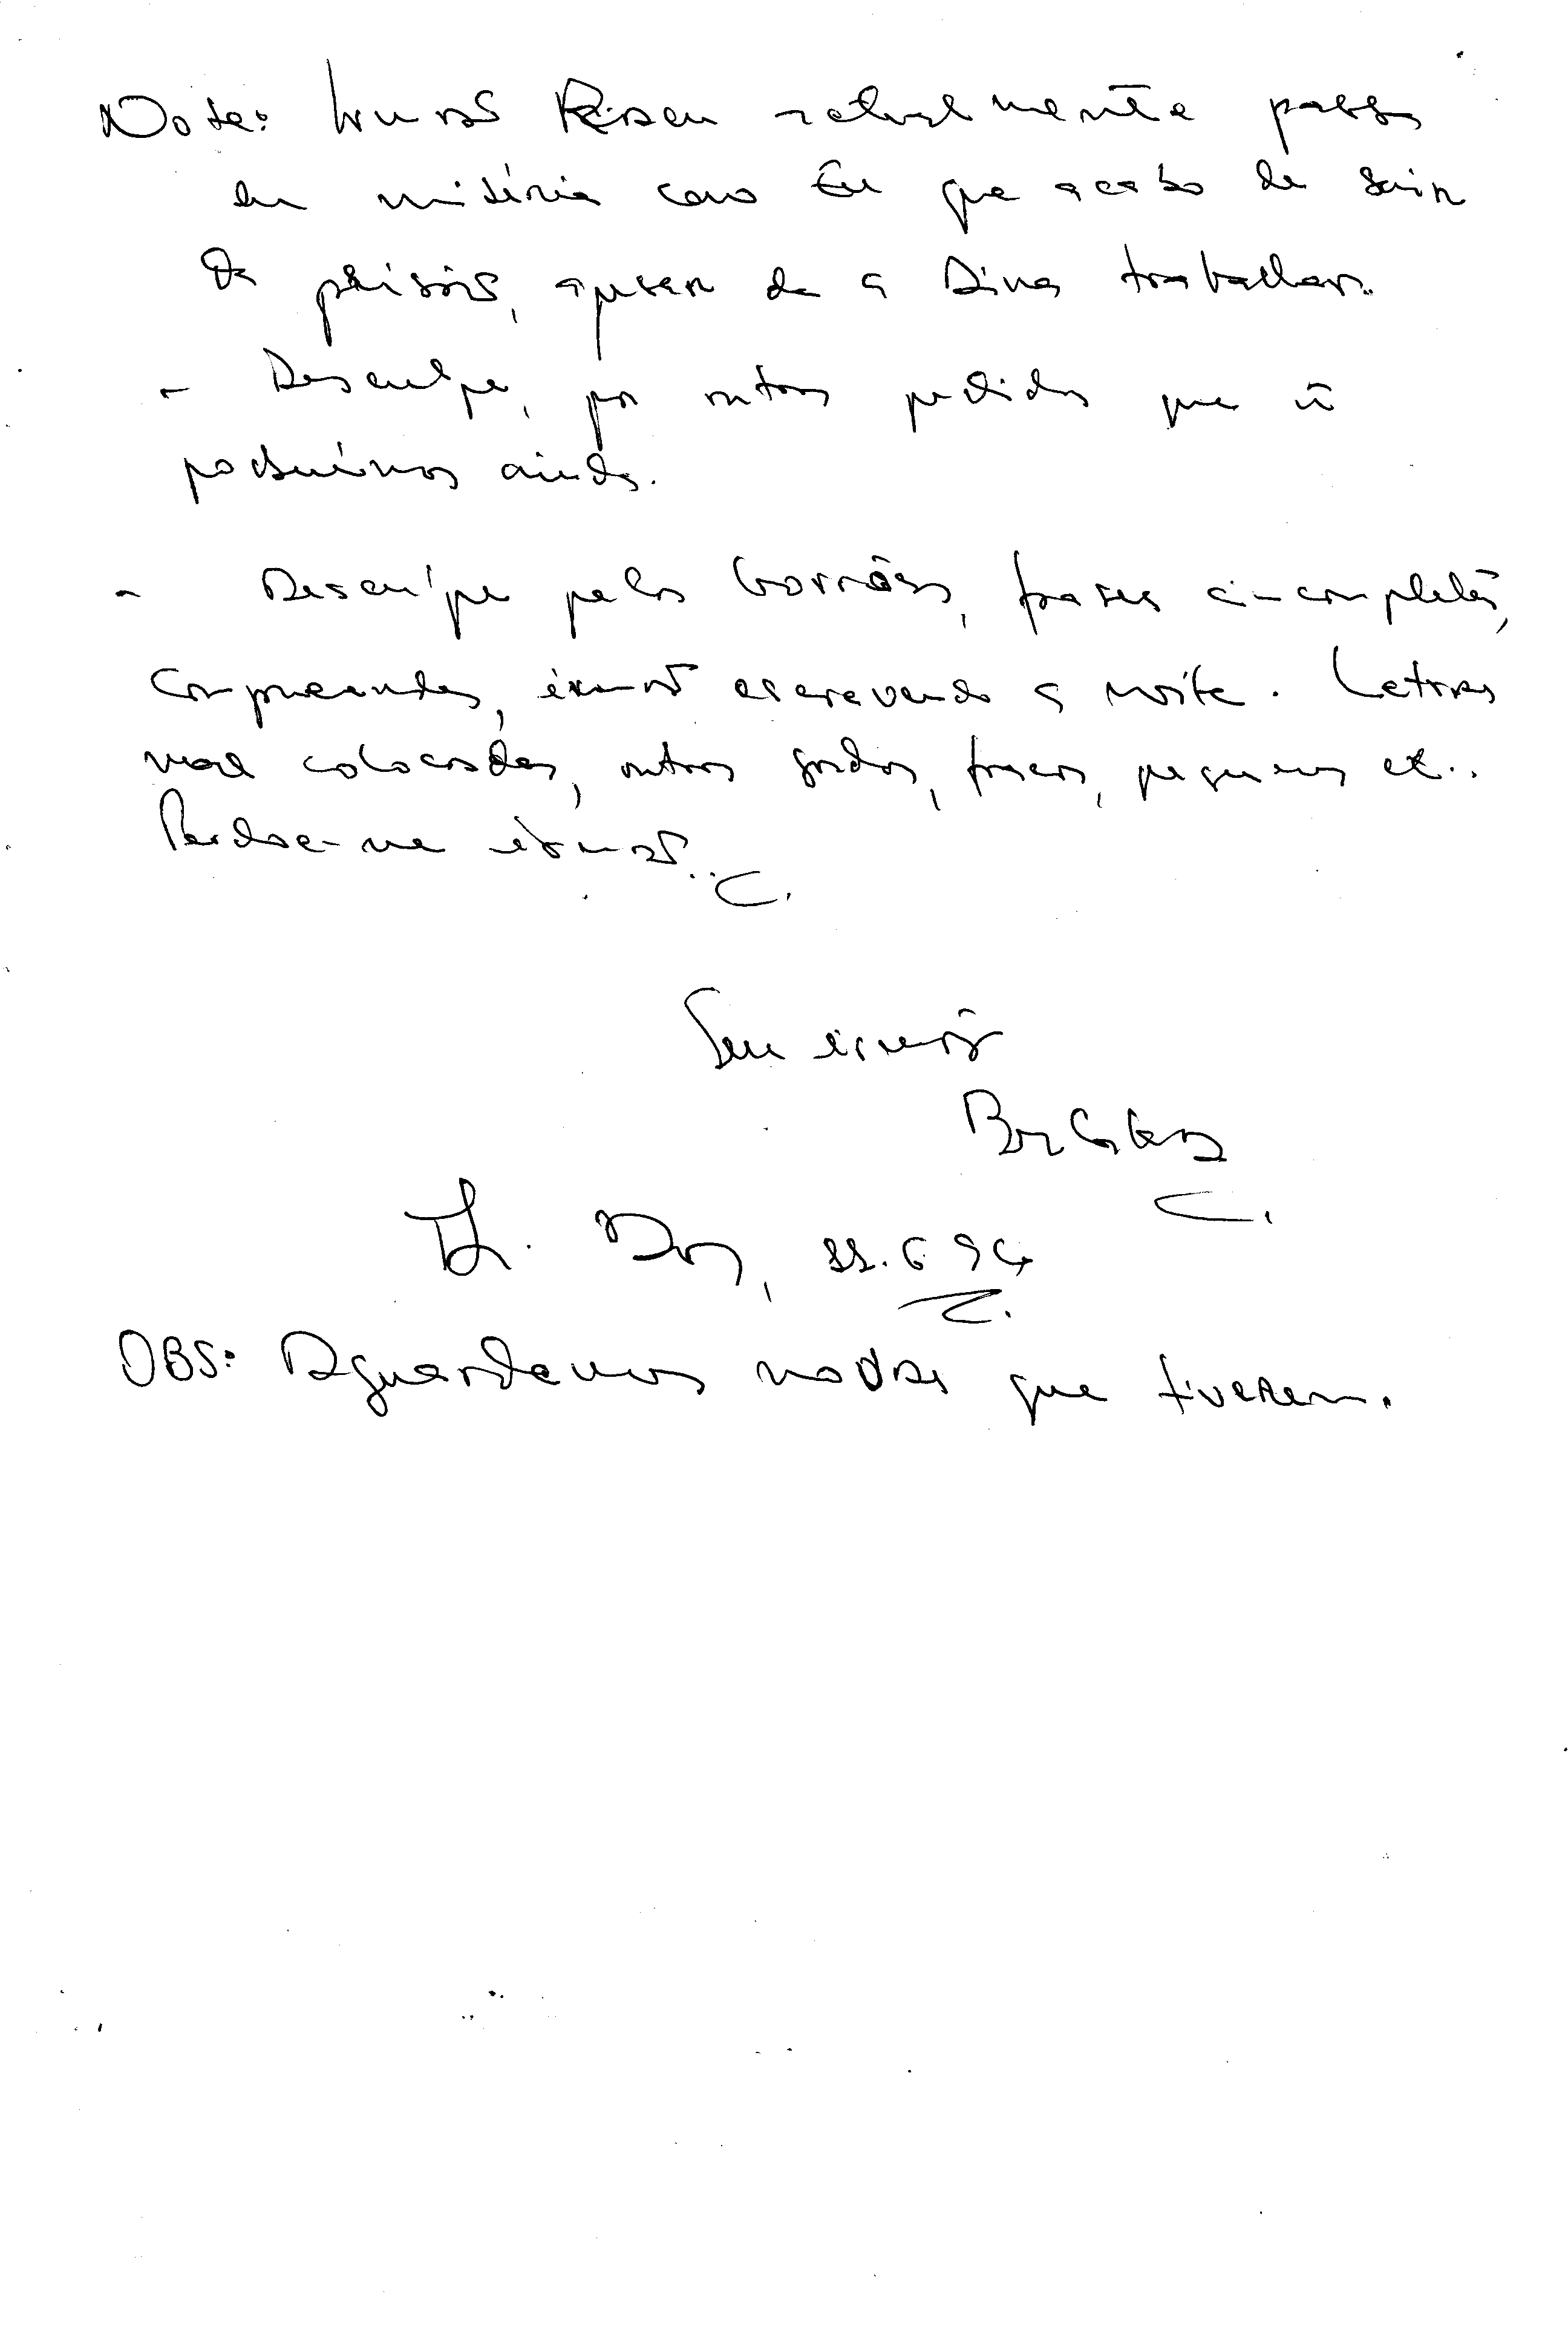 Nota: Irmão actualmente passa
em miséria como Eu que acabo de sair
da prisão, apesar de a Dina trabalhar.
- Desculpe, por outros pedidos que ñ
possuímos ainda.
- Desculpe pelos borrões, frases incompletas,
compreenda, irmão escrevendo a noite. Letras
mal colocadas, outras gordas, fracas, pequenas etc..
Perdoe-me irmão..
Seu irmão
6 94
OBS: Aguardamos novas que tiverem.